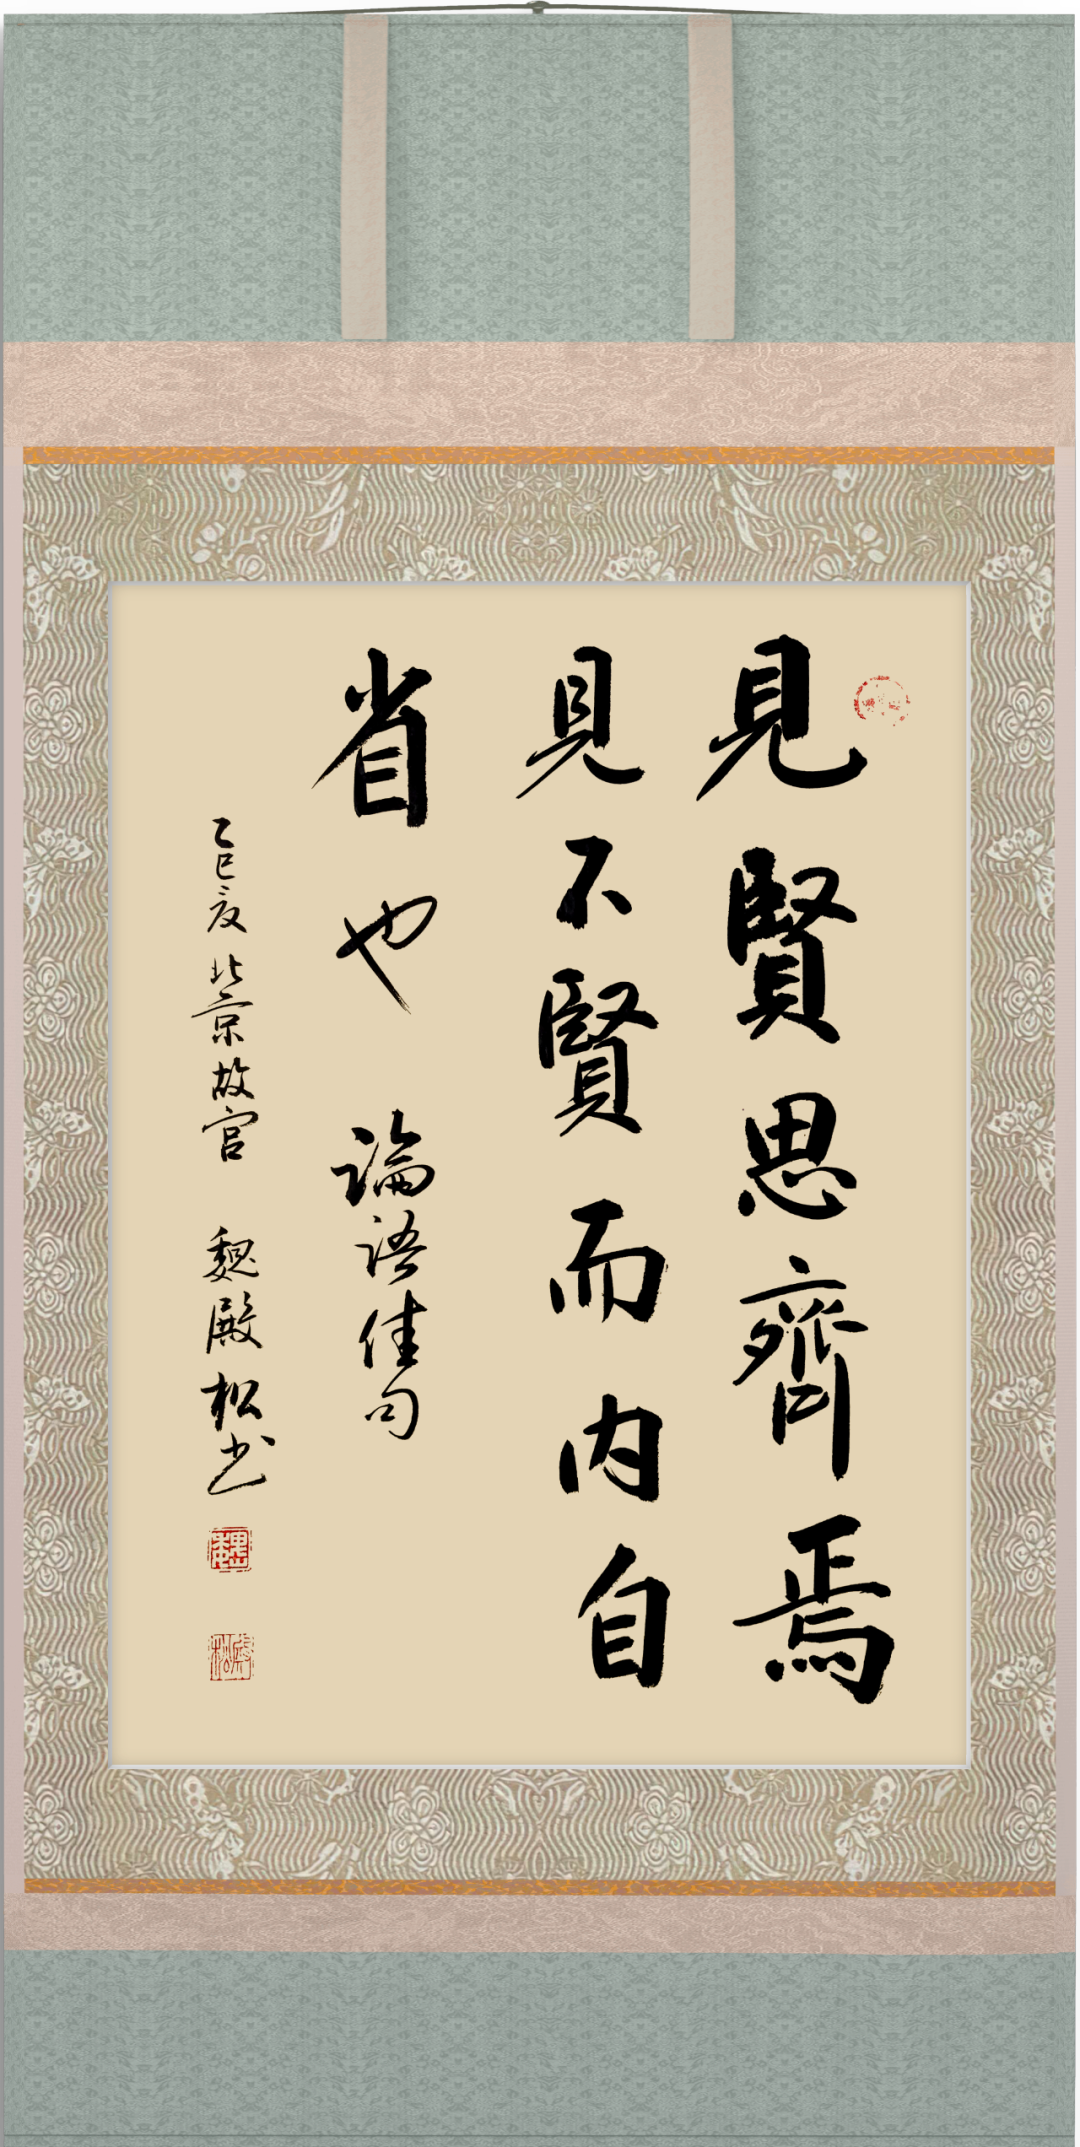 見賢思齊焉
見不賢而内自
省也 論語佳句
乙巳夏 北京故宫 魏殿松书
魏
殿松